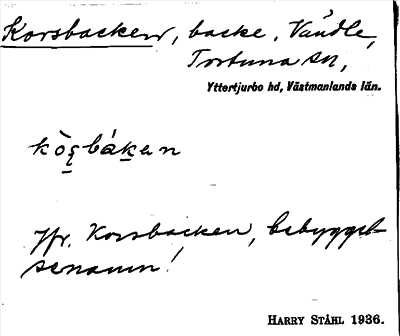 Korsbacken, backe, Vändle,
Tortuna sn,
Yttertjurbo hd, Västmanlands län.
kòʂbákan
Jfr. Korsbacken, bebyggel-
senamn!
HARRY STÅHL 1936.